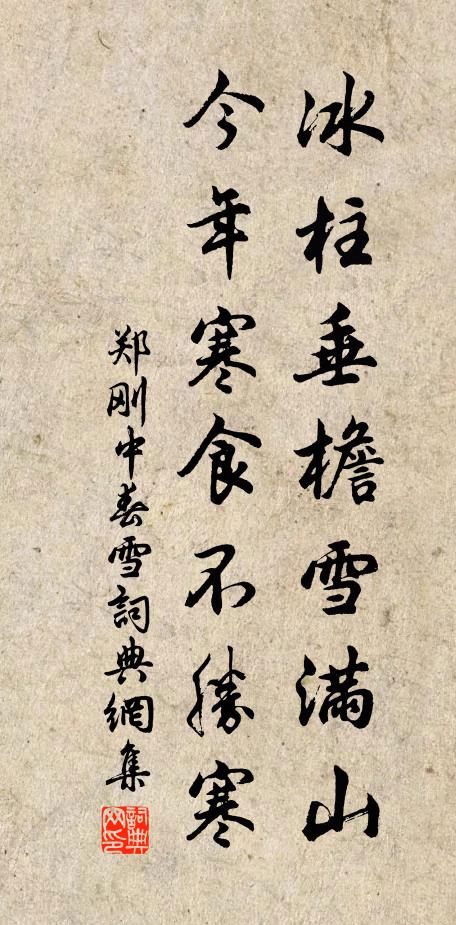 冰柱垂檐雪满山
今年寒食不勝寒
郑刚中春雪詞典網集
詞典网印